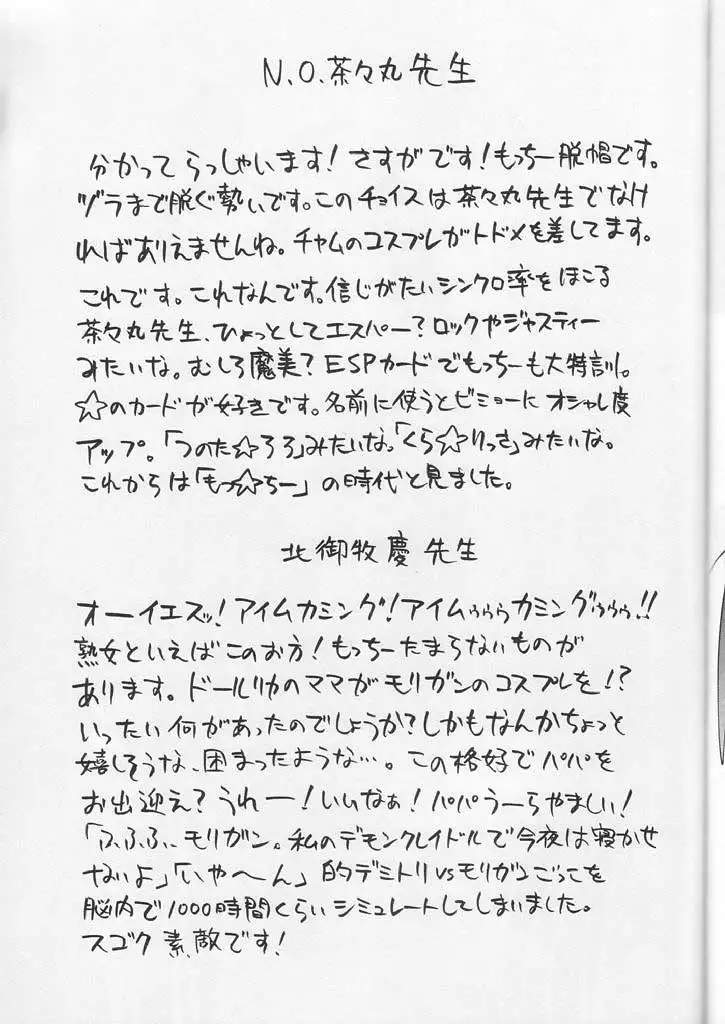 N.O.茶々丸先生
分かってらっしゃいます!さすがです!もっちー脱帽です。
ヅラまで脱ぐ勢いです。このチョイスは茶々丸先生でなけ
ればありえませんね。チャムのコスプレがトドメを差してます。
これです。これなんです。信じがたいシンクロ率をほこる
茶々丸先生、ひょっとしてエスパー?ロックやジャスティー
みたいな。むしろ魔美?ESPカードでもっちーも大特訓。
☆のカードが好きです。名前に使うとビミョーにオシャレ度
アップ。「つのた☆ろろ」みたいな。「くら☆りっさ」みたいな。
これからは「もっ☆ちー」の時代と見ました。
北御牧慶先生
オーイエスッ!アイムカミング!アイムゥゥゥカミングゥゥゥ!!
熟女といえばこのお方!もっちーたまらないものが
あります。ドールリカのママがモリガンのコスプレを!?
いったい何があったのでしょうか?しかもなんかちょっと
嬉しそうな、困まったような…。この格好でパパを
お出迎え?うれー!いいなぁ!パパうーらやましい!
「ふふふ…モリガン。私のデモンクレイドルで今夜は寝かせ
ないよ」「いや〜ん」的デミトリvsモリガンごっこを
脳内で1000時間くらいシミュレートしてしまいました。
スゴク素敵です!